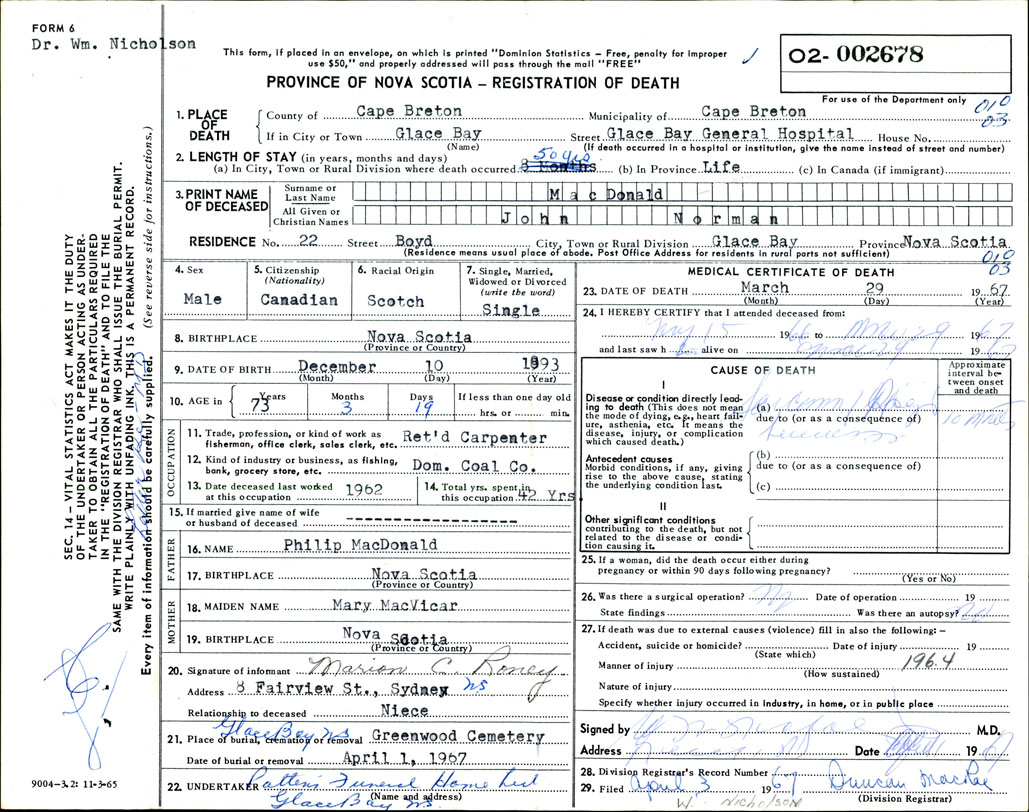 FORM 6
Dr. Wm. Nicholson
This form, if placed in an envelope, on which is printed "Dominion Statistics – Free, penalty for improper
use $50," and properly addressed will pass through the mail "FREE"
O2- 002678
PROVINCE OF NOVA SCOTIA – REGISTRATION OF DEATH
For use of the Department only
010
03
1. PLACE OF DEATH
County of Cape Breton Municipality of Cape Breton
If in City or Town Glace Bay Street Glace Bay General Hospital House No.
(Name) (If death occurred in a hospital or institution, give the name instead of street and number)
2. LENGTH OF STAY (in years, months and days)
50 yrs
(a) In City, Town or Rural Division where death occurred 8 Months (b) In Province Life (c) In Canada (if immigrant)
3. PRINT NAME OF DECEASED
Surname or Last Name MacDonald
All Given or Christian Names John Norman
RESIDENCE No. 22 Street Boyd City, Town or Rural Division Glace Bay Province Nova Scotia
(Residence means usual place of abode. Post Office Address for residents in rural parts not sufficient)
010
03
4. Sex
Male
5. Citizenship
(Nationality)
Canadian
6. Racial Origin
Scotch
7. Single, Married,
Widowed or Divorced
(write the word)
Single
8. BIRTHPLACE Nova Scotia
(Province or Country)
9. DATE OF BIRTH December 10 1893
(Month) (Day) (Year)
10. AGE in Years Months Days If less than one day old
73 3 19 hrs. or min.
OCCUPATION
11. Trade, profession, or kind of work as
fisherman, office clerk, sales clerk, etc. Ret'd Carpenter
12. Kind of industry or business, as fishing,
bank, grocery store, etc. Dom. Coal Co.
13. Date deceased last worked
at this occupation 1962
14. Total yrs. spent in
this occupation 42 Yrs
15. If married give name of wife
or husband of deceased ----------------
FATHER
16. NAME Philip MacDonald
17. BIRTHPLACE Nova Scotia
(Province or Country)
MOTHER
18. MAIDEN NAME Mary MacVicar
19. BIRTHPLACE Nova Scotia
(Province or Country)
20. Signature of informant Marion C. Roney
Address 8 Fairview St., Sydney NS
Relationship to deceased Niece
Glace Bay NS
21. Place of burial, cremation or removal Greenwood Cemetery
Date of burial or removal April 1, 1967
22. UNDERTAKER Patten's Funeral Home Ltd
(Name and address)
Glace Bay NS
MEDICAL CERTIFICATE OF DEATH
23. DATE OF DEATH March 29 1967
(Month) (Day) (Year)
24. I HEREBY CERTIFY that I attended deceased from:
15 1966 to 29 1967
and last saw h alive on 29 19
CAUSE OF DEATH
Approximate
interval be-
tween onset
and death
I
Disease or condition directly lead-
ing to death (This does not mean
the mode of dying, e.g., heart fail-
ure, asthenia, etc. It means the
disease, injury, or complication
which caused death.)
(a)
due to (or as a consequence of)
Antecedent causes
Morbid conditions, if any, giving
rise to the above cause, stating
the underlying condition last.
(b)
due to (or as a consequence of)
(c)
II
Other significant conditions
contributing to the death, but not
related to the disease or condi-
tion causing it.
25. If a woman, did the death occur either during
pregnancy or within 90 days following pregnancy?
(Yes or No)
26. Was there a surgical operation? Date of operation 19
State findings Was there an autopsy?
27. If death was due to external causes (violence) fill in also the following: –
Accident, suicide or homicide? Date of injury 19
(State which)
Manner of injury 196.4
(How sustained)
Nature of injury
Specify whether injury occurred in Industry, in home, or in public place
Signed by M.D.
Address Date 1967
28. Division Registrar's Record Number
29. Filed April 3 1967 Duncan MacRae
(Division Registrar)
W. Nicholson
SEC. 14 – VITAL STATISTICS ACT MAKES IT THE DUTY
OF THE UNDERTAKER OR PERSON ACTING AS UNDER-
TAKER TO OBTAIN ALL THE PARTICULARS REQUIRED
IN THE "REGISTRATION OF DEATH" AND TO FILE THE
SAME WITH THE DIVISION REGISTRAR WHO SHALL ISSUE THE BURIAL PERMIT.
WRITE PLAINLY WITH UNFADING INK. THIS IS A PERMANENT RECORD.
Every item of information should be carefully supplied. (See reverse side for instructions.)
9004-3.2: 11-3-65